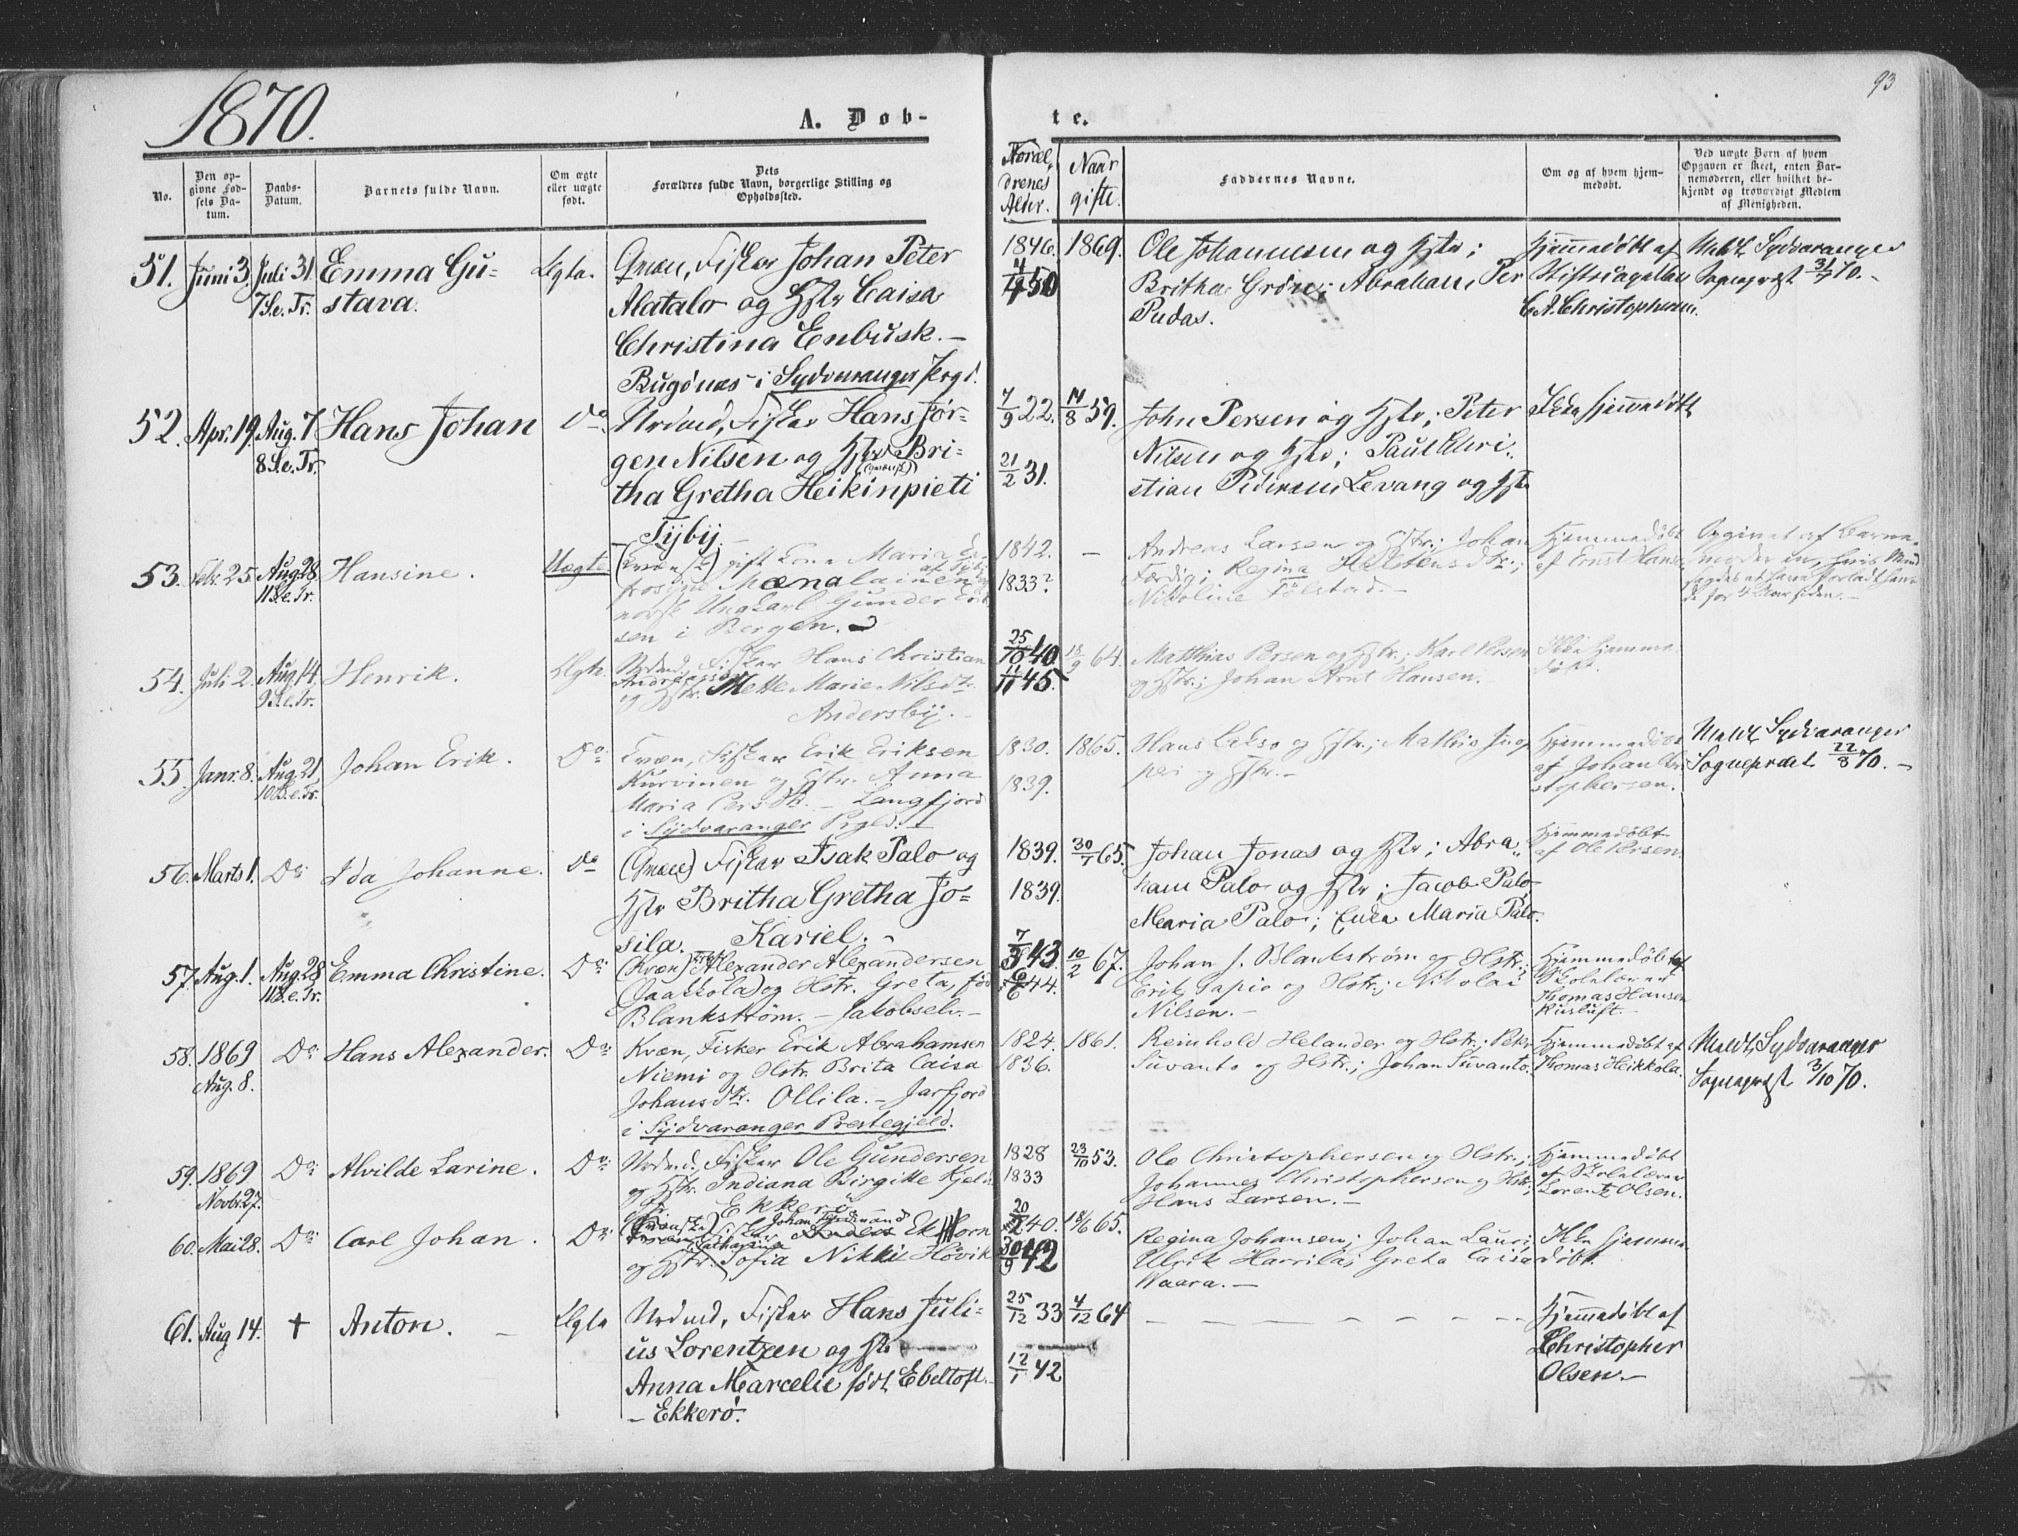 1870.
93
A. Døb-
te.
No.
Den op-
givne Fød-
sels Da-
tum.
Daabs-
Datum.
Barnets fulde Navn.
Om ægte
eller uægte
født.
Dets
Forældres fulde Navn, borgerlige Stilling og
Opholdssted.
Foræl-
drenes
Alder.
Naar
gifte.
Faddernes Navne.
Om og af hvem hjem-
medøbt.
Ved uægte Børn af hvem
Opgaven er skeet, enten Bar-
nemoderen, eller hvilket be-
kjendt og troværdigt Medlem
af Menigheden.
51. Juni 3. Juli 31.
7 S. e. Tr.
Emma Gu-
stava.
Ægte.
Qvæn, Fisker Johan Peter
Alatalo og Hstr Caisa
Christina Enbusk. —
Bugønæs i Sydvaranger Prgd.
1846.
50
1869.
Ole Johannesen og Hstr;
Britha Grön; Abraham, Per
Pudas.
Hjemmedøbt af
C. A. Christophersen.
Meldt Sydvaranger
Sogneprest 31/7 70. -
52. Apr. 19. Aug. 7
8 S. e. Tr.
Hans Johan
Do
Nordmd, Fisker Hans Jør-
gen Nilsen og Hstr Bri-
tha Gretha Heikinpieti
Tyby. -
7/9 22.
21/2 31.
14/8 59.
John Persen og Hstr; Peter
Nilsen og Hstr; Paul Chri-
stian Pedersen Levang og Hstr
Ikke hjemmedøbt
53. Febr. 25. Aug. 28
11 S. e. Tr.
Hansine.
Uægte
(Kvæn) gift Kone Maria Eu-
frosine Mænalainen
norsk Ungkarl Gunder Erik-
sen i Bergen.
1842.
1833?
—
Andreas Larsen og Hstr; Johan
Færdig; Regina Heldensdtr;
Nikoline Følstad. -
Hjemmedøbt
af Ernst Hansen
Opgivet af Barne-
moderen, hvis Mand
sagdes at have forladt hen-
de for 4 Aar siden. -
54. Juli 2. Aug. 14
9 S. e. Tr.
Henrik.
Ægte.
Nordmd, Fisker Hans Christian
Andreassen
og Hstr. Mette Marie Nilsdtr
Andersby. -
25/10 40
11/11 45.
18/9 64.
Matthias Persen og Hstr.; Karl Persen
og Hstr.; Johan Arnt Hansen.
Ikke hjemme-
døbt.
55. Janr. 8. Aug. 21,
10 S. e. Tr.
Johan Erik.
Do
Kvæn, Fisker Erik Eriksen
Kurvinen og Hstr. Anna
Maria Persdtr. - Langfjord
i Sydvaranger Prgld.
1830.
1839.
1865.
Hans Lakso og Hstr.; Mathis Jun-
peri og Hstr. -
Hjemmedøbt
af Johan Kri-
stophersen.
Meldt Sydvaranger
Sogneprest 22/8 70. -
56. Marts 1. Do
Ida Johanne.
Do
(Qvæn) Fisker Isak Palo og
Hstr Britha Gretha Jo-
sila. Kariel. -
1839.
1839.
30/1 65.
Johan Jonas og Hstr; Abra-
ham Palo og Hstr; Jacob Palo
Maria Palo; Eva Maria Palo.
Hjemmedøbt
af Ole Persen.
57. Aug. 1. Aug. 28
11 S. e. Tr.
Emma Christine.
Do
(Kvæn) Alexander Alexandersen
(Jaakkola) og Hstr. Greta, fød
Blankstrøm. - Jakobselv. -
43
44.
10/2 67.
Johan J. Blankstrøm og Hstr.;
Erik Tapio og Hstr.; Nikolai
Nilsen. -
Hjemmedøbt af
Skolelærer
Thomas Hansen
Kusluft. -
58. 1869
Aug. 8.
Do
Hans Alexander.
Do
Kvæn, Fisker Erik Abrahamsen
Niemi og Hstr. Brita Caisa
Johansdtr. Ollila. - Jarfjord
i Sydvaranger Prestegjeld.
1824.
1836.
1861.
Reinhold Helander og Hstr.; Peter
Suvanto og Hstr.; Johan Suvanto.
Hjemmedøbt af
Thomas Heikkola.
Meldt Sydvaranger
Sogneprest 3/10 70.
59. 1869
Novbr. 27.
Do
Alvilde Larine.
Do
Nordmd. Fisker Ole Gundersen
og Hstr. Indiana Birgitte Kjeld-
Ekkerö
1828
1833
23/10 53.
Ole Christophersen og Hstr.;
Johannes Christophersen og Hstr;
Hans Larsen. -
Hjemmedøbt
af Skolelærer
Lorentz Olsen.
60. Mai 28. Do
Carl Johan.
Do
(Kvænske) Fisker Johan Ferdinand Ekhorn
Catharina
og Hstr. Sofia Nikki Høvik
20/2 40.
30/9 42
18/6 65.
Regina Johansen; Johan Lauri,
Ulrik Harrila; Greta Caisa
Waara. -
Ikke hjemme-
døbt.
61. Aug 14. +
Anton. -
Ægte
Nordmd, Fisker Hans Juli-
us Lorentzen og Hstr
Anna Marcelie født Ebeltoft.
- Ekkerø.
25/12 33
12/1 42
4/12 64
— — — — — — —
Hjemmedøbt af
Christopher
Olsen. -